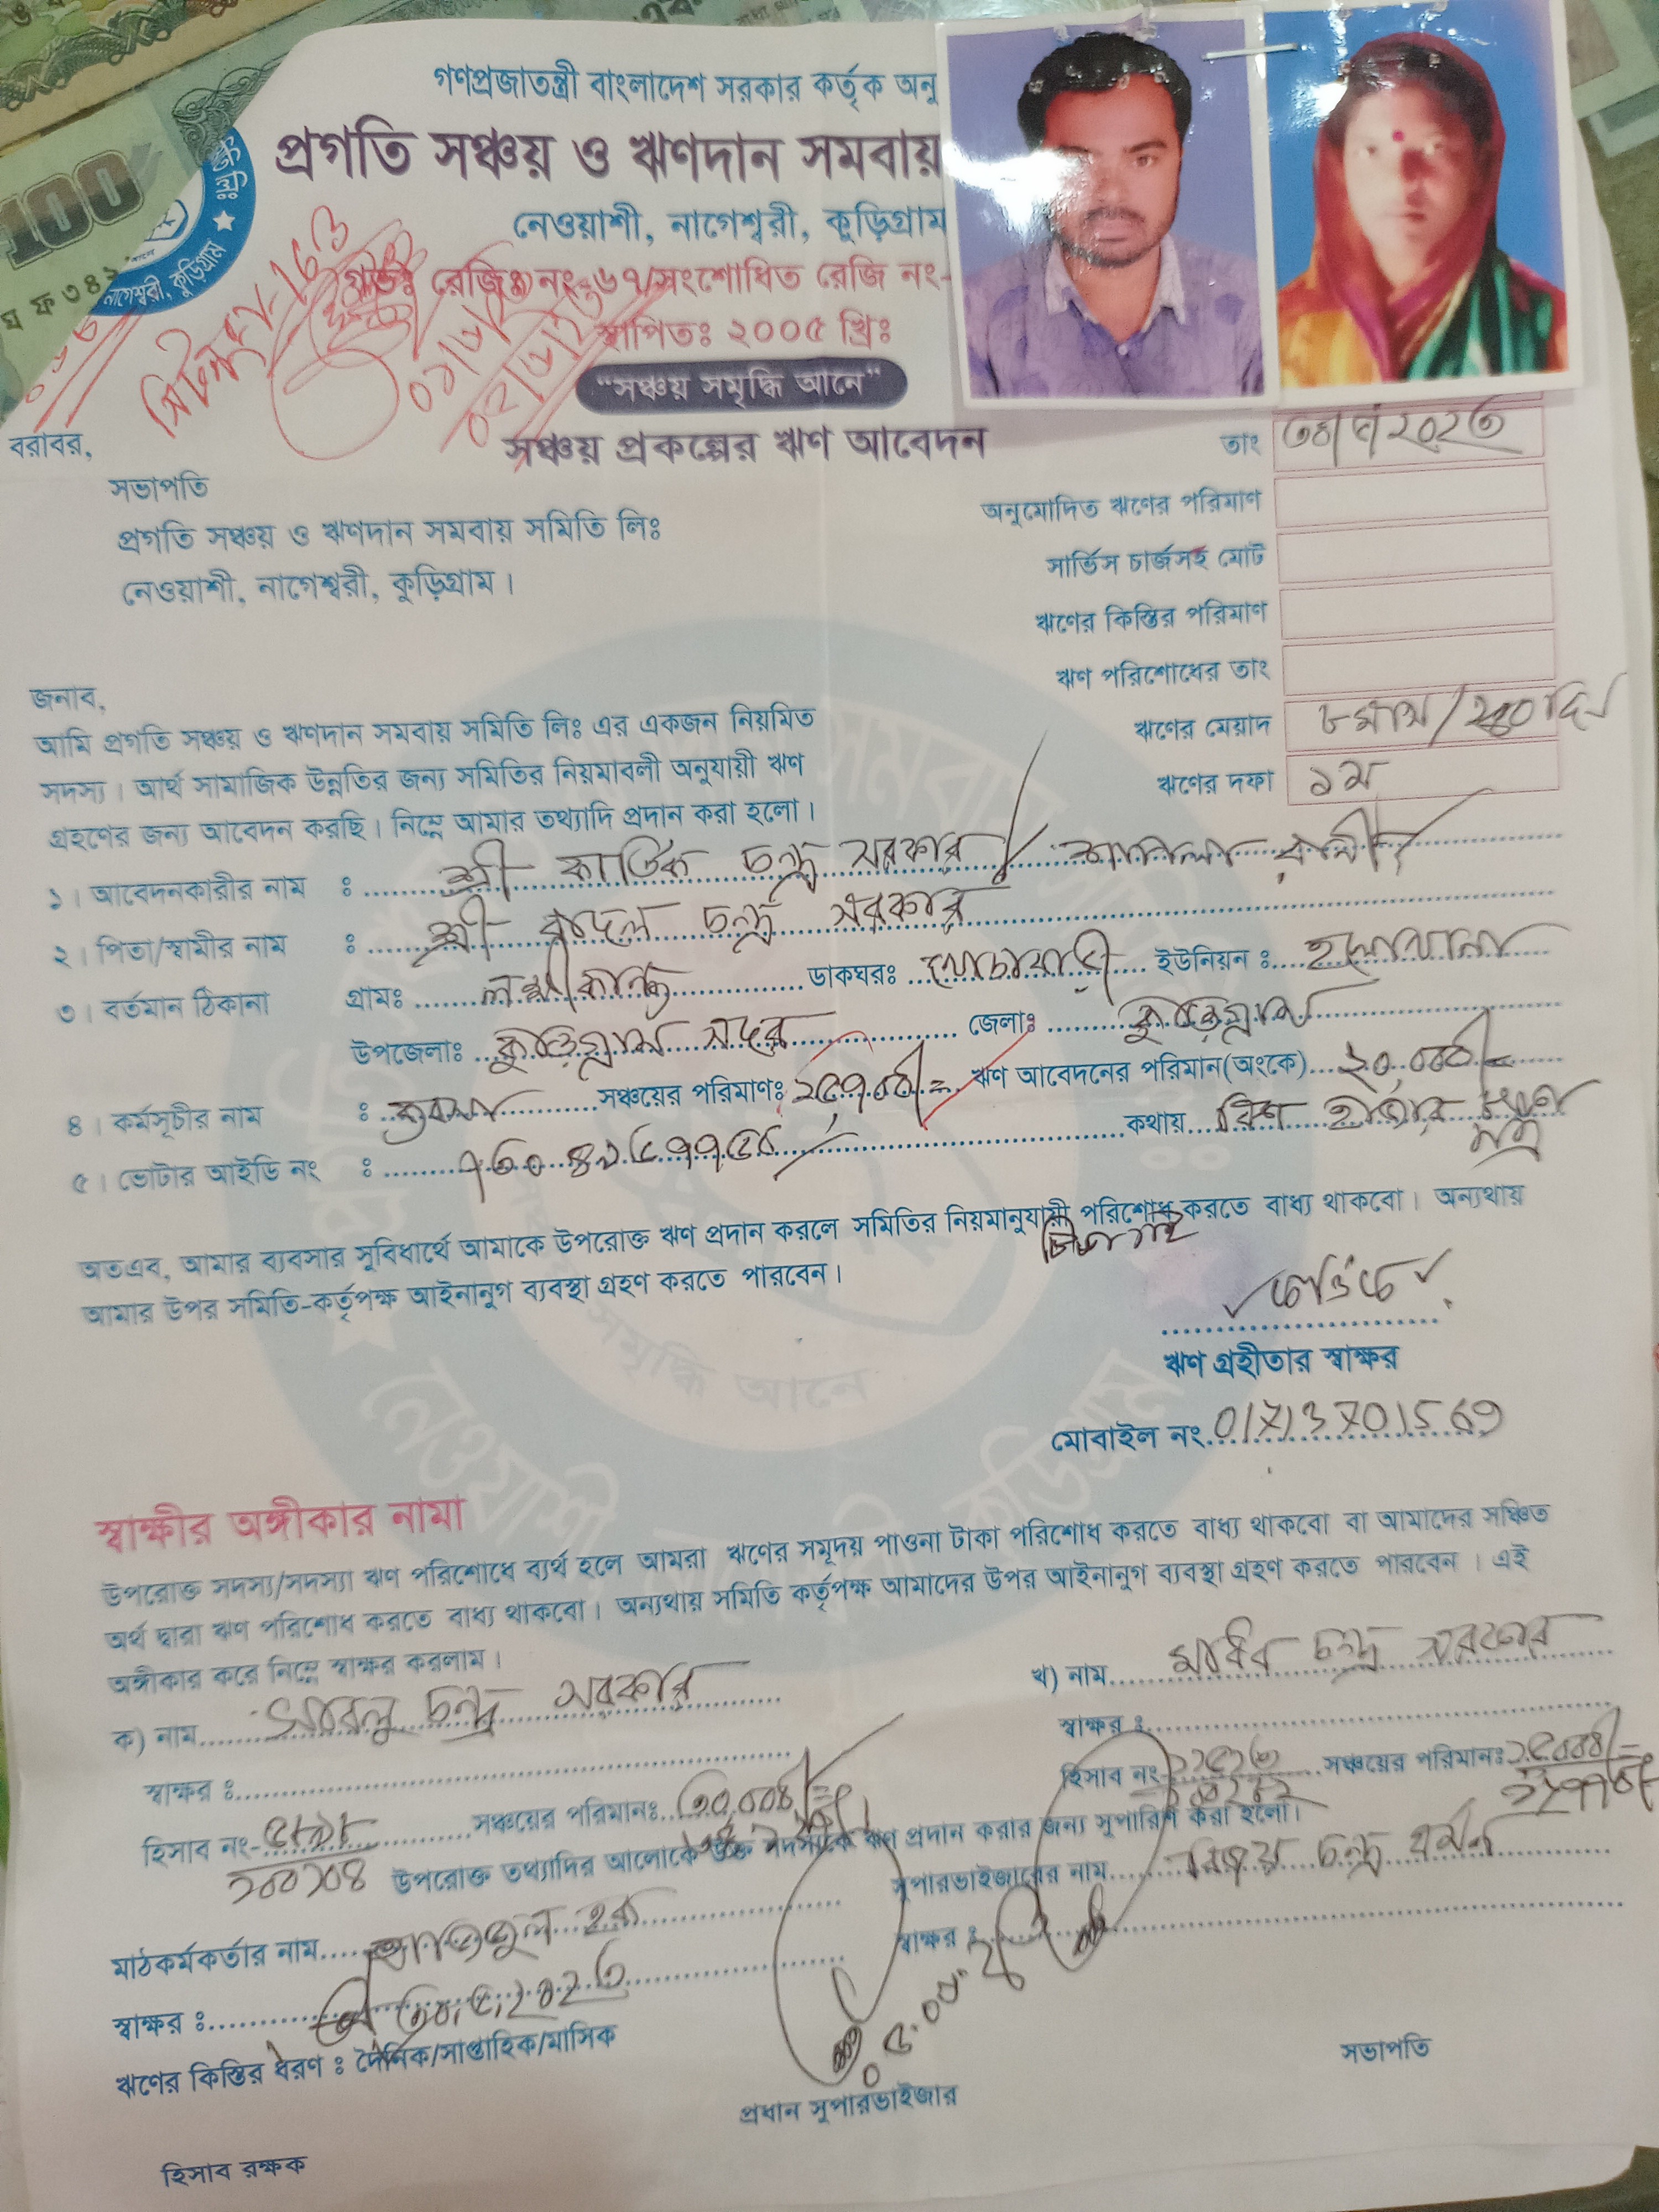 গণপ্রজাতন্ত্রী বাংলাদেশ সরকার কর্তৃক অনু
প্রগতি সঞ্চয় ও ঋণদান সমবায়
নেওয়াশী, নাগেশ্বরী, কুড়িগ্রাম
রেজিঃ নং-৬৭/সংশোধিত রেজি নং-
স্থাপিতঃ ২০০৫ খ্রিঃ
"সঞ্চয় সমৃদ্ধি আনে"
100
ঘ ফ ৩৪২
নাগেশ্বরী, কুড়িগ্রাম
সঞ্চয় প্রকল্পের ঋণ আবেদন
তাং
বরাবর,
সভাপতি
প্রগতি সঞ্চয় ও ঋণদান সমবায় সমিতি লিঃ
নেওয়াশী, নাগেশ্বরী, কুড়িগ্রাম।
অনুমোদিত ঋণের পরিমাণ
সার্ভিস চার্জসহ মোট
ঋণের কিস্তির পরিমাণ
ঋণ পরিশোধের তাং
ঋণের মেয়াদ ৮ মাস/২৪০ দিন
ঋণের দফা ১ম
জনাব,
আমি প্রগতি সঞ্চয় ও ঋণদান সমবায় সমিতি লিঃ এর একজন নিয়মিত
সদস্য। আর্থ সামাজিক উন্নতির জন্য সমিতির নিয়মাবলী অনুযায়ী ঋণ
গ্রহণের জন্য আবেদন করছি। নিম্নে আমার তথ্যাদি প্রদান করা হলো।
১। আবেদনকারীর নাম : শ্রী কার্তিক চন্দ্র সরকার / রানী
২। পিতা/স্বামীর নাম : শ্রী বাদল চন্দ্র সরকার
৩। বর্তমান ঠিকানা গ্রামঃ লক্ষ্মীকান্ত ডাকঘরঃ ইউনিয়ন : হলোখানা
উপজেলাঃ কুড়িগ্রাম সদর জেলাঃ কুড়িগ্রাম
৪। কর্মসূচীর নাম : ব্যবসা সঞ্চয়ের পরিমাণঃ ঋণ আবেদনের পরিমান(অংকে) ২০,০০০/=
৫। ভোটার আইডি নং : কথায় বিশ হাজার টাকা মাত্র
অতএব, আমার ব্যবসার সুবিধার্থে আমাকে উপরোক্ত ঋণ প্রদান করলে সমিতির নিয়মানুযায়ী পরিশোধ করতে বাধ্য থাকবো। অন্যথায়
আমার উপর সমিতি-কর্তৃপক্ষ আইনানুগ ব্যবস্থা গ্রহণ করতে পারবেন।
ঋণ গ্রহীতার স্বাক্ষর
মোবাইল নং 01713701569
স্বাক্ষীর অঙ্গীকার নামা
উপরোক্ত সদস্য/সদস্যা ঋণ পরিশোধে ব্যর্থ হলে আমরা ঋণের সমূদয় পাওনা টাকা পরিশোধ করতে বাধ্য থাকবো বা আমাদের সঞ্চিত
অর্থ দ্বারা ঋণ পরিশোধ করতে বাধ্য থাকবো। অন্যথায় সমিতি কর্তৃপক্ষ আমাদের উপর আইনানুগ ব্যবস্থা গ্রহণ করতে পারবেন। এই
অঙ্গীকার করে নিম্নে স্বাক্ষর করলাম।
ক) নাম চন্দ্র সরকার
খ) নাম চন্দ্র সরকার
স্বাক্ষর :
স্বাক্ষর :
হিসাব নং- সঞ্চয়ের পরিমানঃ
হিসাব নং সঞ্চয়ের পরিমানঃ
উপরোক্ত তথ্যাদির আলোকে উক্ত সদস্যকে ঋণ প্রদান করার জন্য সুপারিশ করা হলো।
মাঠকর্মকর্তার নাম হক
সুপারভাইজারের নাম চন্দ্র বর্মন
স্বাক্ষর :
স্বাক্ষর :
ঋণের কিস্তির ধরণ : দৈনিক/সাপ্তাহিক/মাসিক
প্রধান সুপারভাইজার
সভাপতি
হিসাব রক্ষক